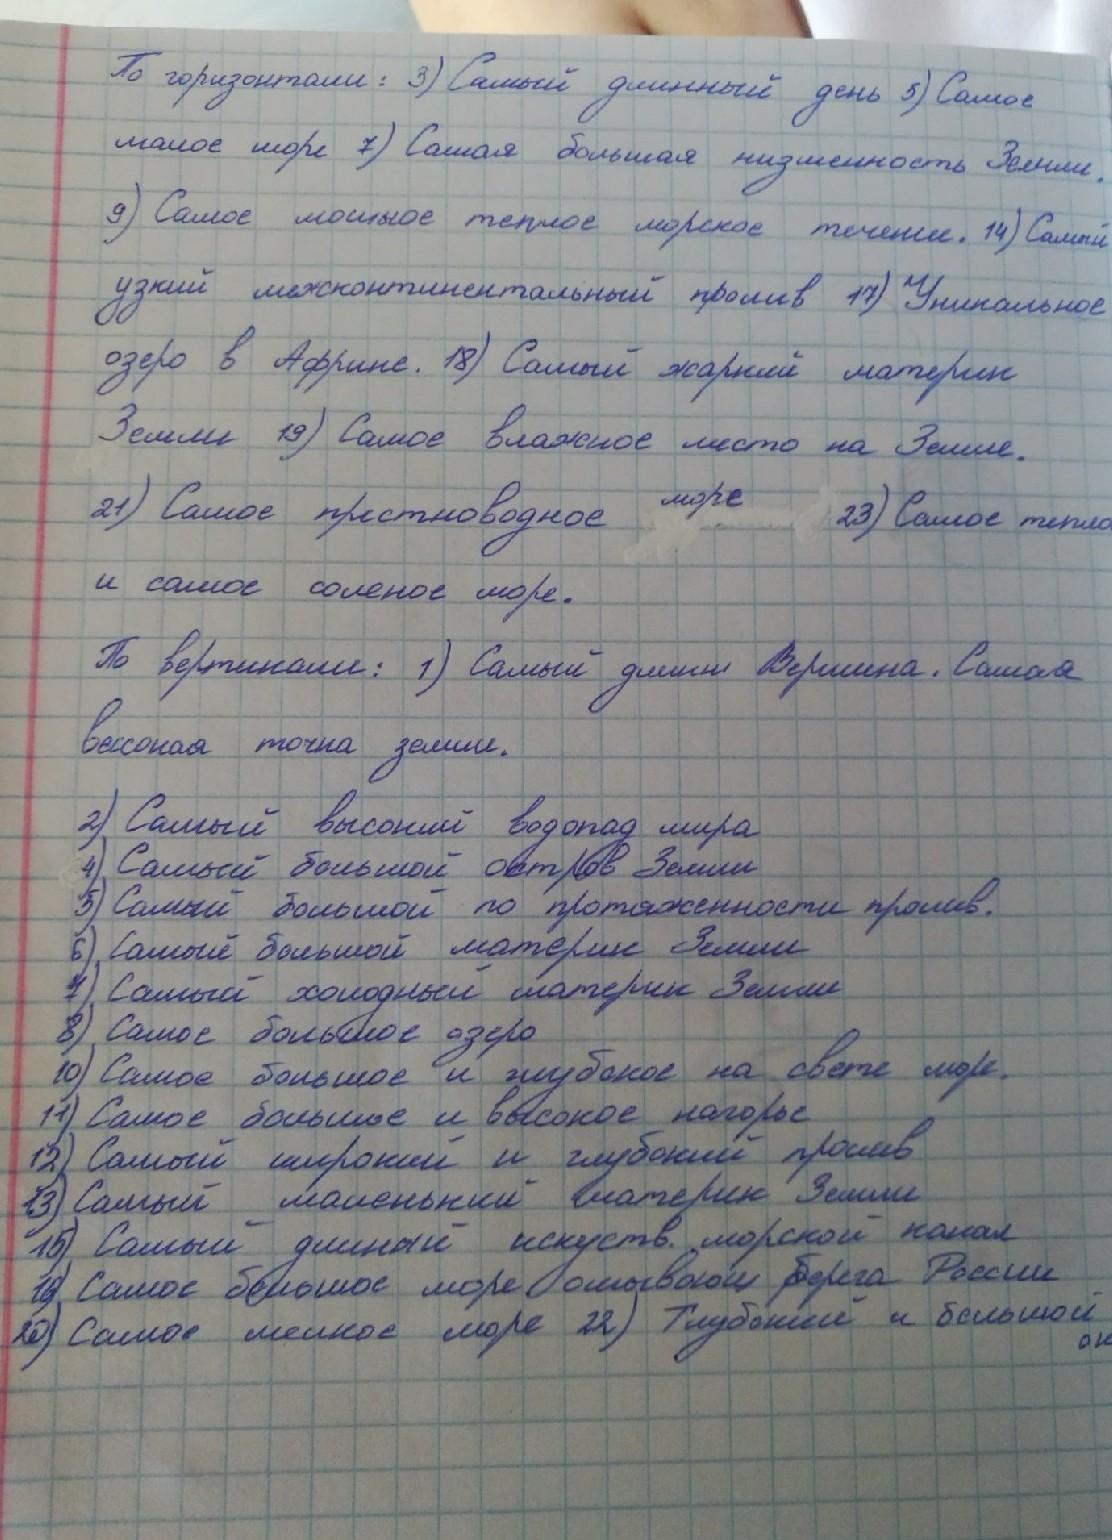 По горизонтали: 3) Самый длинный день 5) Самое
малое море 7) Самая большая низменность Земли.
9) Самое мощное теплое морское течение. 14) Самый
узкий межконтинентальный пролив 17) Уникальное
озеро в Африке. 18) Самый жаркий материк
Земли 19) Самое влажное место на Земле.
21) Самое пресноводное море 23) Самое тепло
и самое соленое море.
По вертикали: 1) Самый длинн Вершина. Самая
высокая точка земли.
2) Самый высокий водопад мира
4) Самый большой остров Земли
5) Самый большой по протяженности пролив.
6) Самый большой материк Земли
7) Самый холодный материк Земли
8) Самое большое озеро
10) Самое большое и глубокое на свете море.
11) Самое большое и высокое нагорье
12) Самый широкий и глубокий пролив
13) Самый маленький материк Земли
15) Самый длиный искуств. морской канал
16) Самое большое море омывающ берега России
20) Самое мелкое море 22) Глубокий и большой
ок